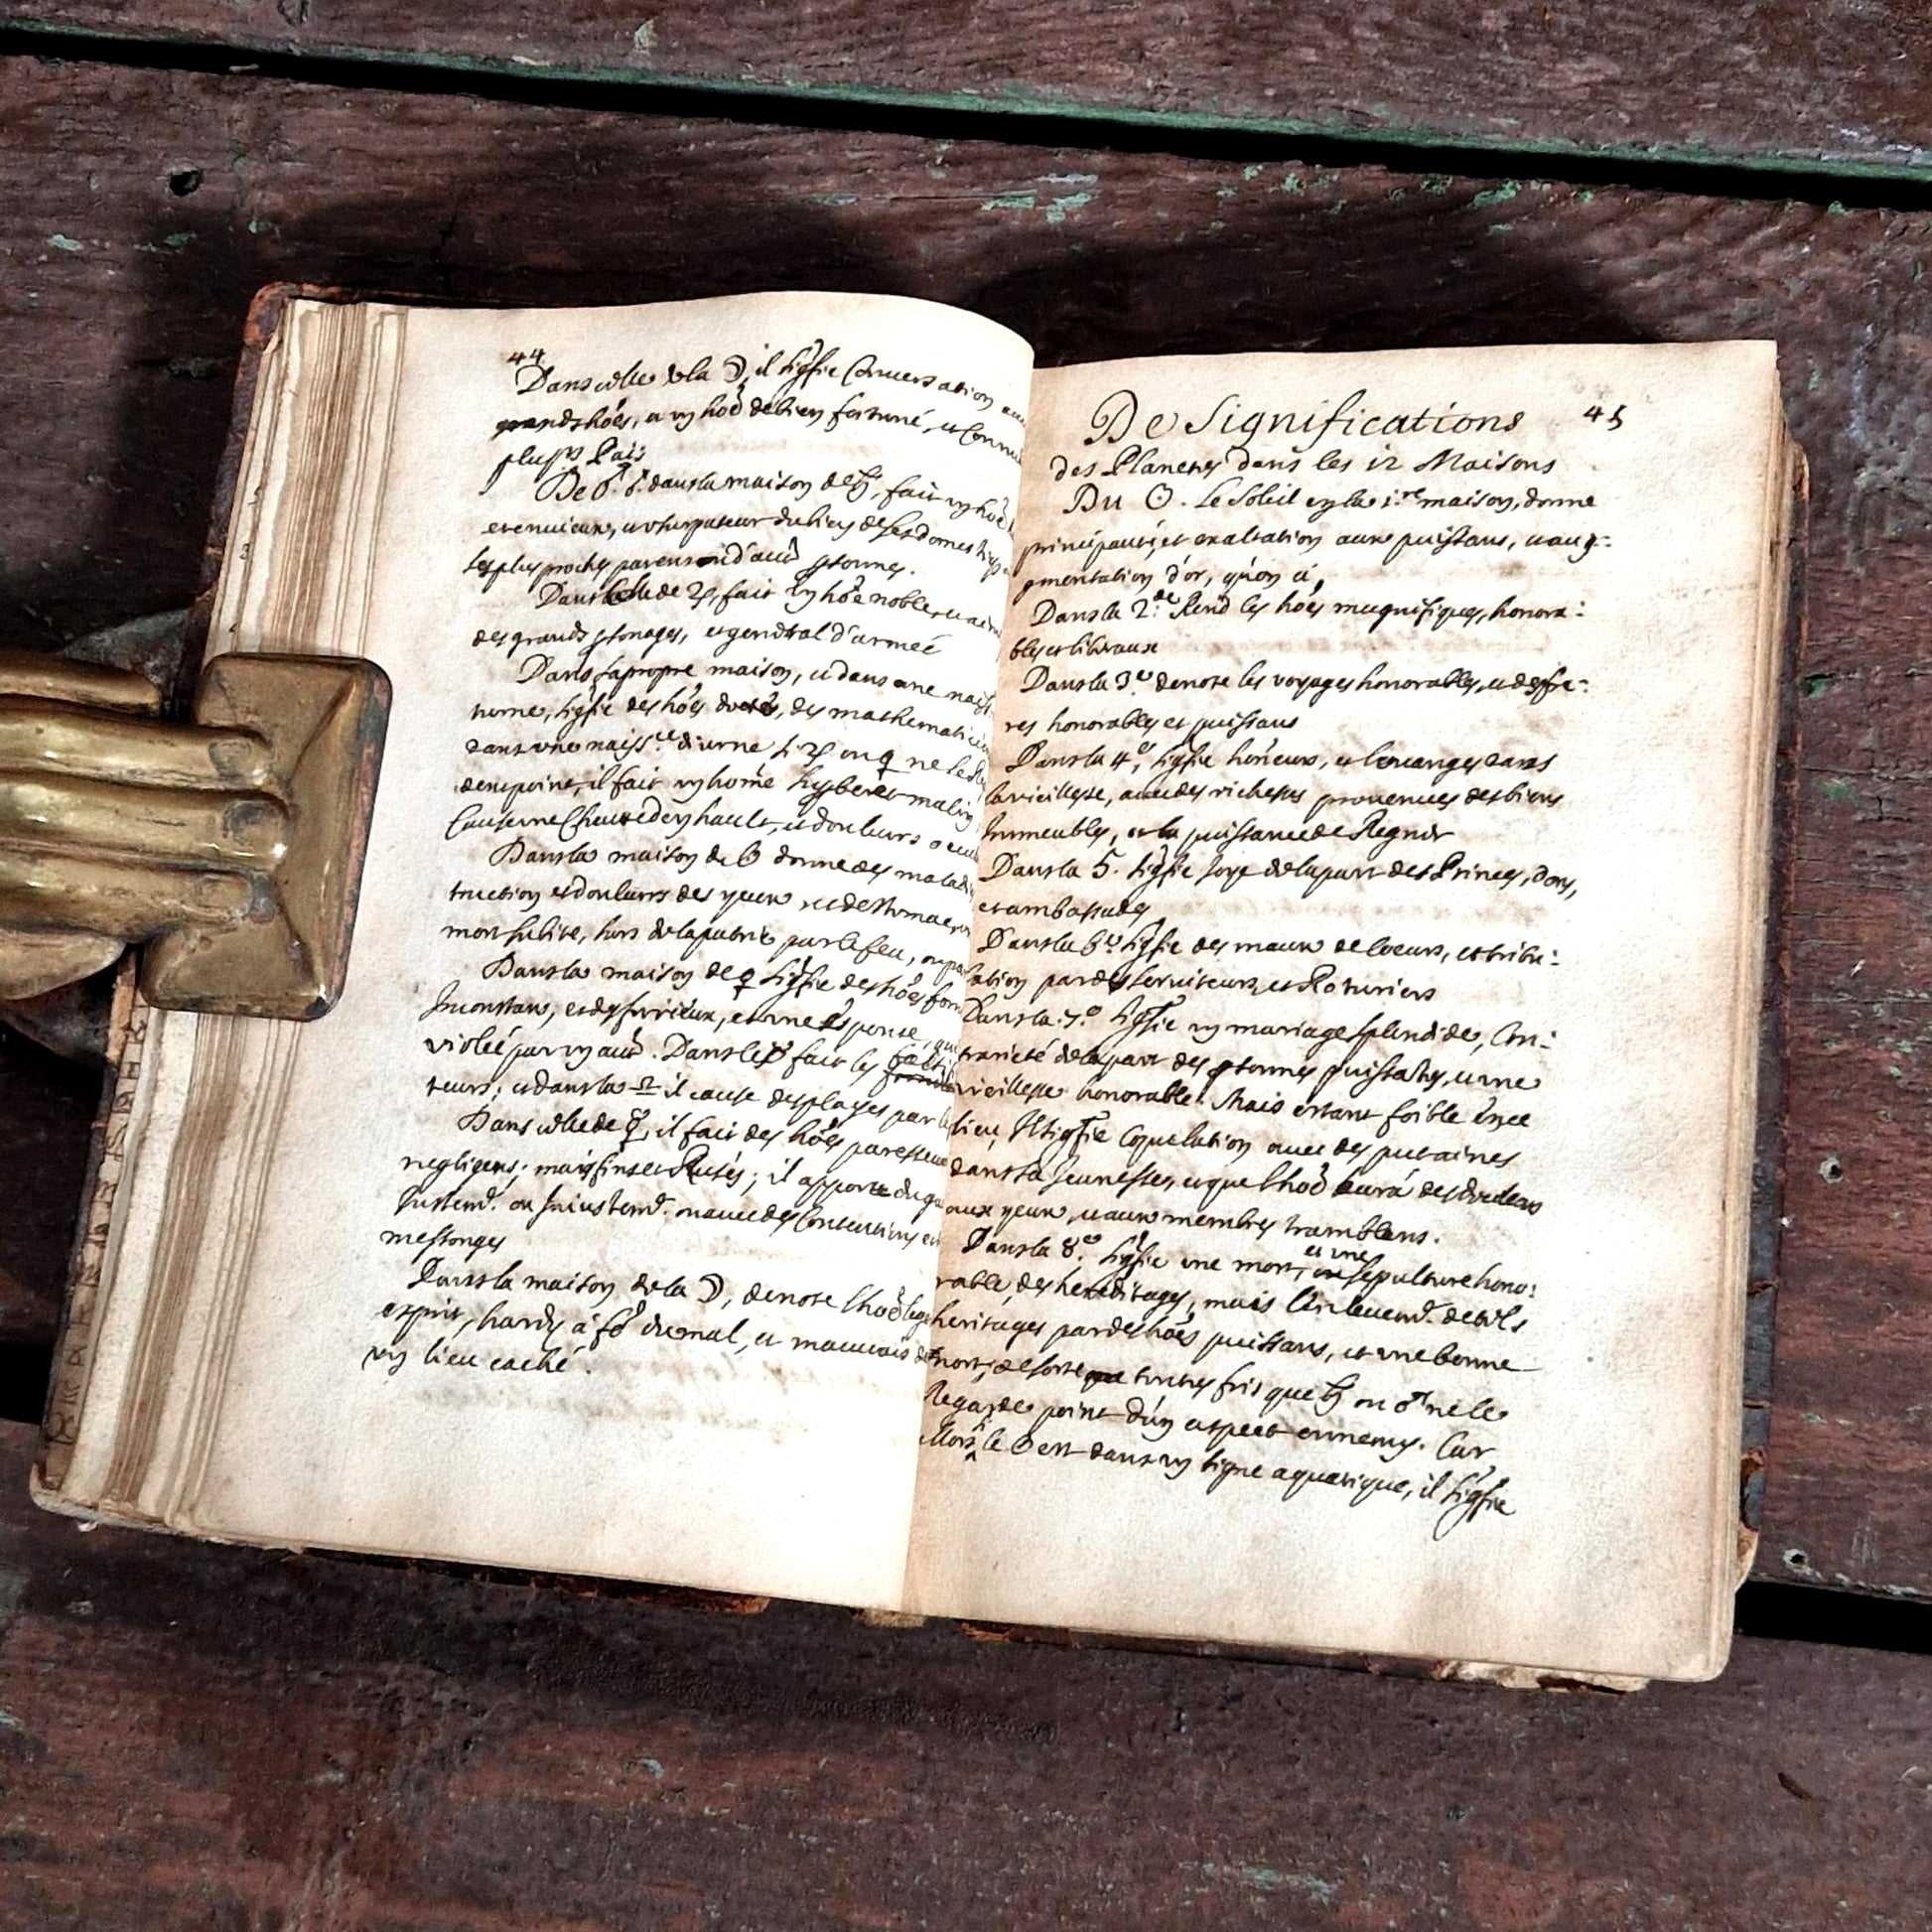 44
Dans celle de la ☽, il sigfie Conversation avec
grands hoes, a vn hoe de bien fortuné, et Connu
plusrs Païs
De ♂. ♂. dans la maison de ♄, fait vn hoe
et enuieux, et vsurpateur du bien de ses domestiqs
ses plus prochs parens d'autr psonnes.
Dans celle de ♃, fait vn hoe noble, et
des grands psonages, et general d'armeé
Dans sa propre maison, et dans vne naiss
turne, sigfie des hoes doctes, des mathematicien
dans vne naissce diurne si ♃ ou ♀ ne le
den point, il fait vn home superbe et malin
Cause vne Cheute d'en hault, et douleurs
Dans la maison du ☉ donne des maladi
truction et douleurs des yeux, et de l'estomac
mort subite, hors de la patrie par le feu, ou par
Dans la maison de ♀ sigfie des hoes forn
Inconstans, et des furieux, et vne Espouse, qui
violeé par vn autr. Dans le ♉ fait les
teurs; et dans la ♎ il cause des playes par le
Dans celle de ☿, il fait des hoes paresseux
negligens; mais fins et Rusés; il apporte du ga
Iustemt. ou Iniustemt. ou auec des Contentions et
messonges
Dans la maison de la ☽, denote l'hoe leg
esprit, hardy à fe du mal, et mauuais de
vn lieu caché.
De Significations 45
des Planetes dans les 12 Maisons
Du ☉. Le Soleil en la 1.re maison, donne
principauté, et exaltation aux puissans, et aug-
gmentation d'or, qu'on a,
Dans la 2.de Rend les hoes magnifiques, honora:
bles et liberaux
Dans la 3.e denote les voyages honorables, et des fre:
res honorables et puissans
Dans la 4.e, sigfie honeurs, et louanges dans
la vieillesse, auec des richesses prouenues des biens
Immeubles, et la puissance de Regner
Dans la 5. sigfie Ioye de la part des Princes, dons,
et ambassades
Dans la 6.e sigfie des maux de coeurs, et tribu:
lation par des seruiteurs, et Roturiers
Dans la 7.e sigfie vn mariage splendide, Con:
trarieté de la part des psonnes puissates, et vne
vieillesse honorable. Mais estant foible en ce
lieu, Il sigfie Copulation auec des putaines
dans sa Ieunesse, et que l'hoe aura des douleurs
aux yeux, et aux membres tramblans.
Dans la 8.e sigfie vne mort, et vne sepulture hono:
rable, des heréditages, mais l'enleuemt. de tels
heritages par des hoes puissans, et vne bonne
mort; de sorte que toutes fois que ♄ ou ♂ ne le
Regarde point d'un aspect ennemy. Car,
Mors le ☉ est dans vn signe aquatique, il sigfie